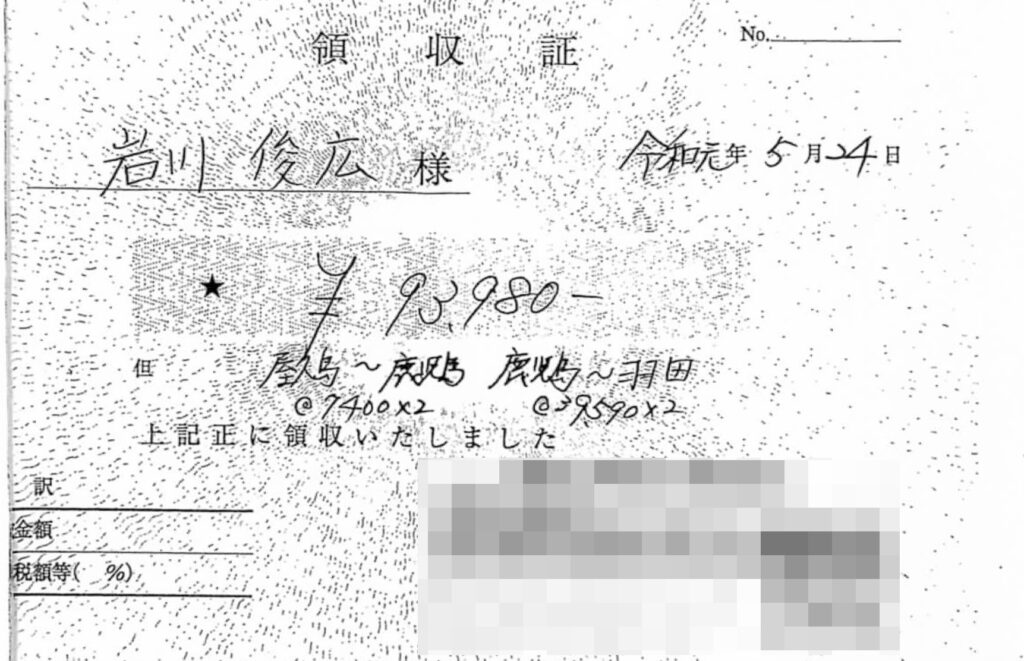 領収証
No.
岩川 俊広 様
令和元年5月24日
★ ¥93,980-
但 屋久島〜鹿児島 鹿児島〜羽田
@7400×2 @39,590×2
上記正に領収いたしました
訳
金額
税額等( %)